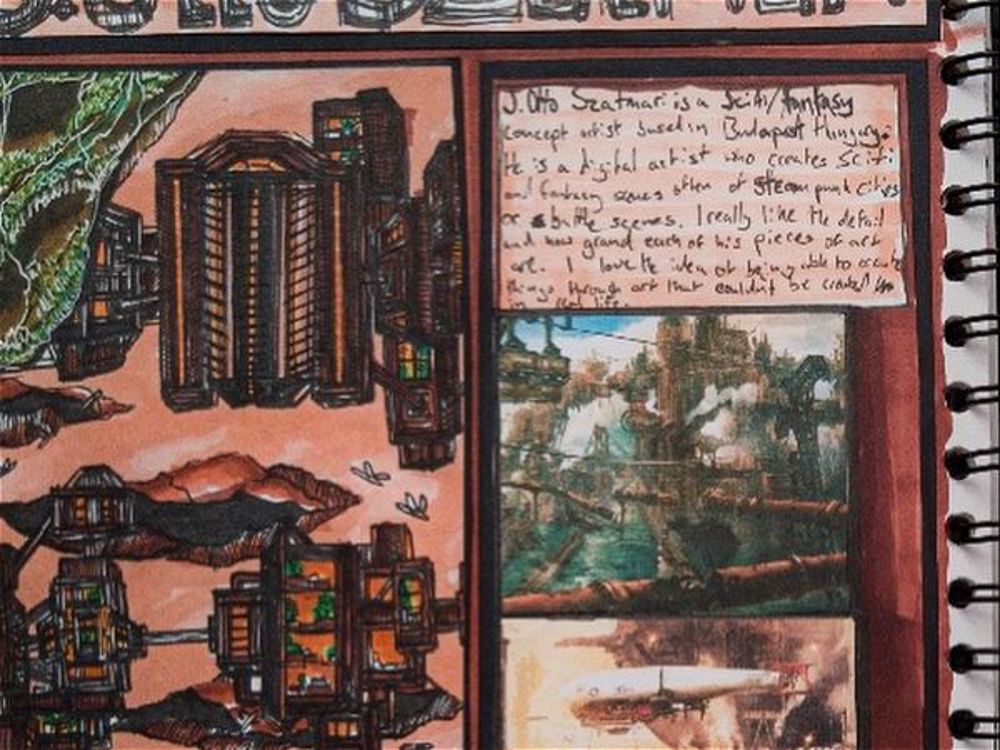 J. Otto Szatmari is a Scifi/fantasy
concept artist based in Budapest Hungary.
He is a digital artist who creates Scifi
and fantasy scenes often of Steampunk cities
or battle scenes. I really like the detail
and how grand each of his pieces of art
are. I love the idea of being able to create
things through art that couldn't be created
in real life.